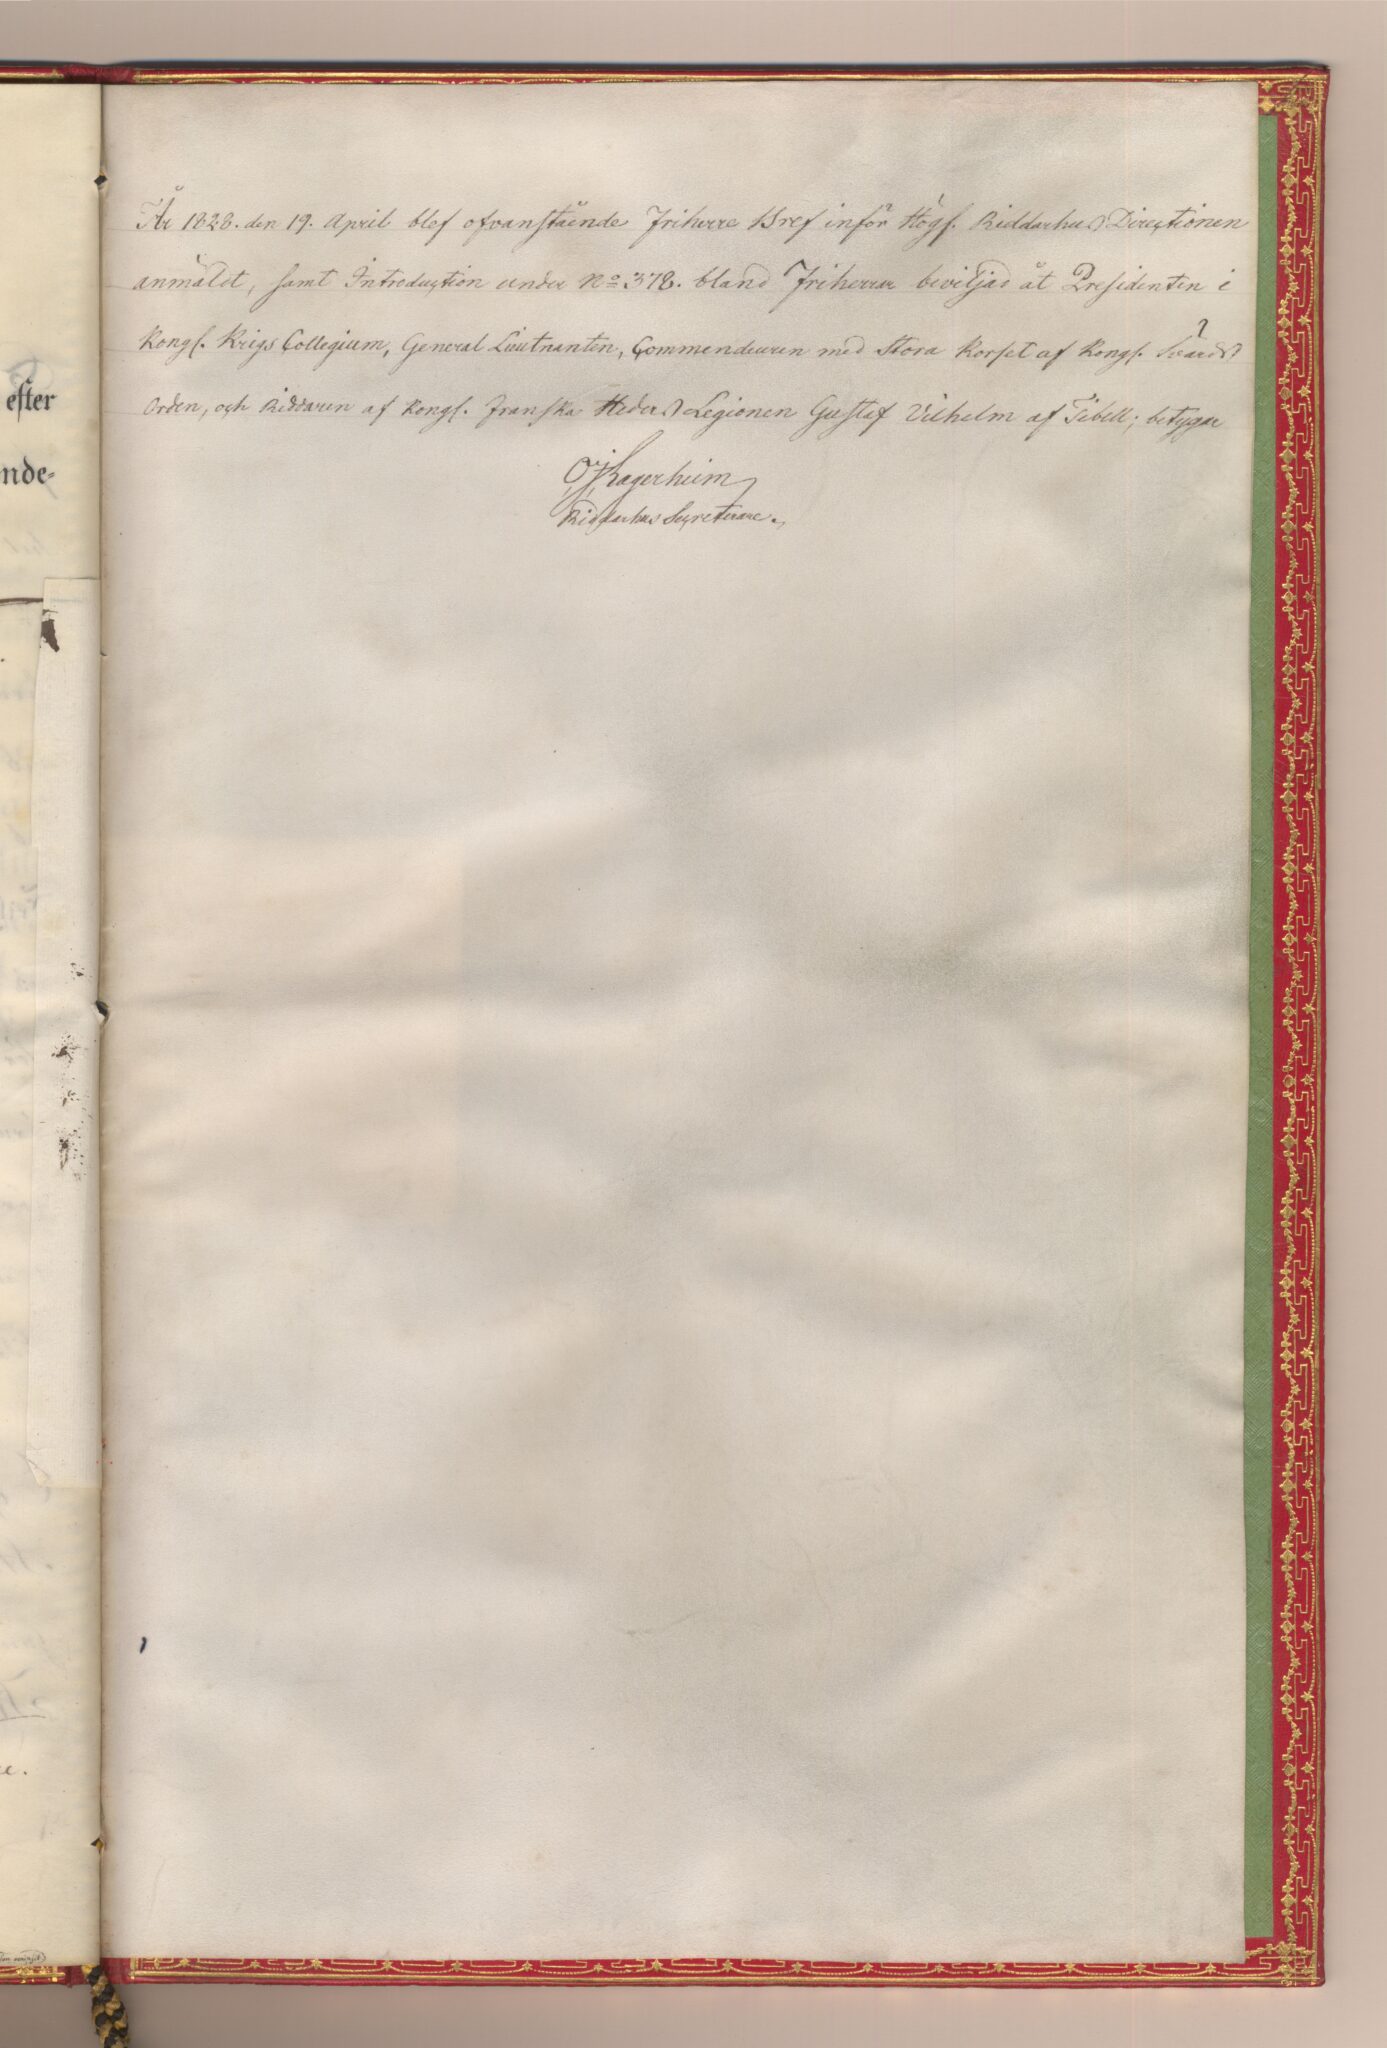 År 1828. den 19. April blef ofvanstående Friherre Bref inför Högl. Riddarhus Directionen
anmäldt, samt Introduction under No 378. bland Friherrar beviljad åt Presidenten i
Kongl. Krigs Collegium, General Lieutnanten, Commendeuren med Stora Korset af Kongl. Svärds
Orden, och Riddaren af Kongl. Franska Heders Legionen Gustaf Vilhelm af Tibell; betygar
Lagerheim
Riddarhus Secreterare.
efter
nde-